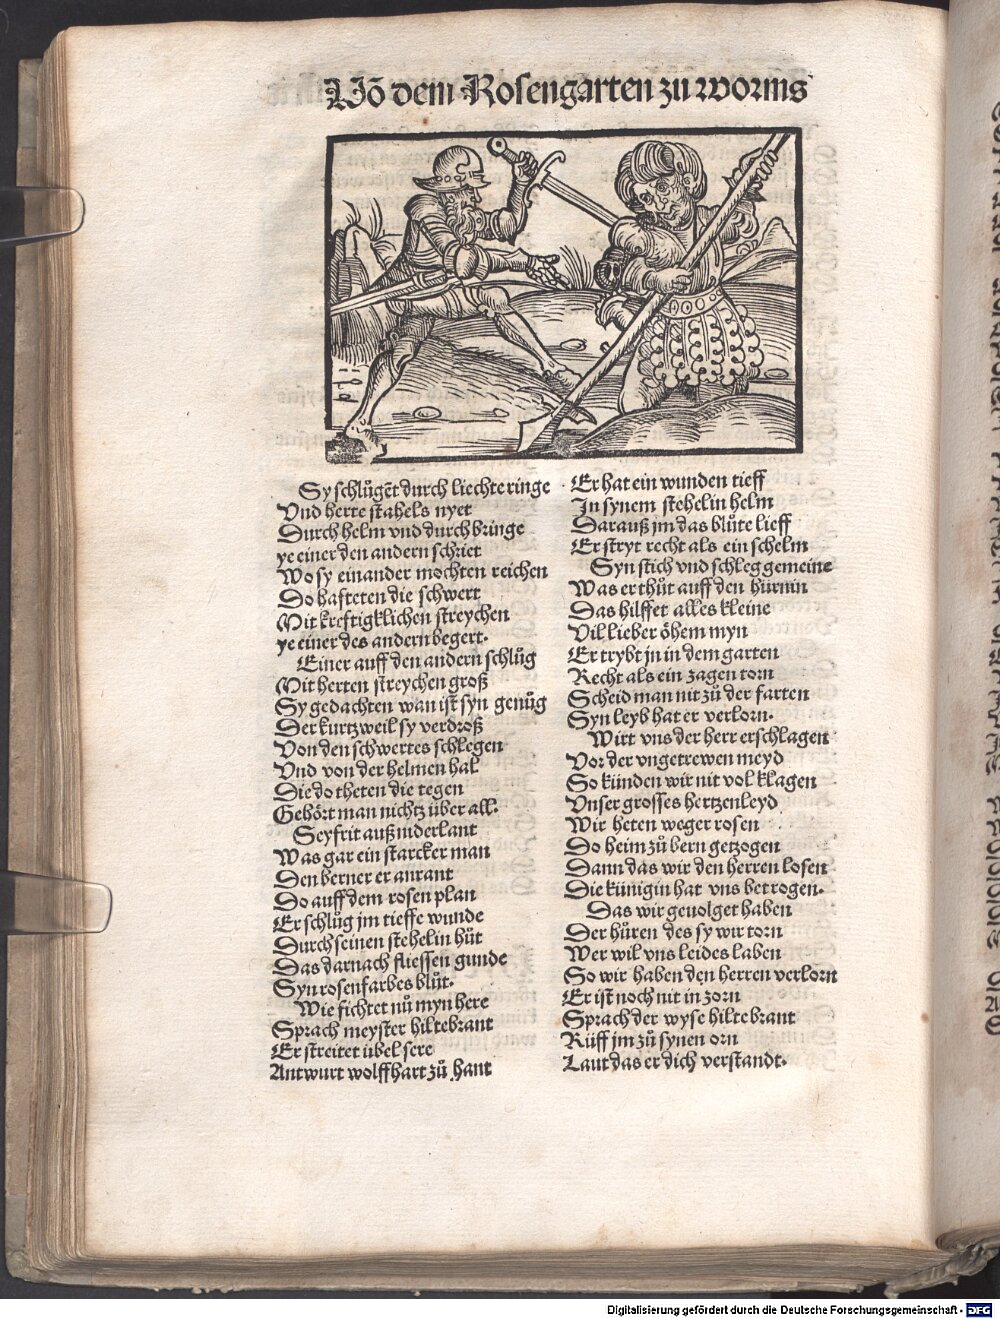 Vō dem Rosengarten zu worms
Sy schlůgēt durch liechte ringe
Vnd herte stahels nyet
Durch helm vnd durch bringe
ye einer den andern schriet
Wo sy einander mochten reichen
Do hafteten die schwert
Mit kreftigklichen streychen
ye einer des andern begert.
Einer auff den andern schlůg
Mit herten streychen groß
Sy gedachten wan ist syn genůg
Der kurtzweil sy verdroß
Von den schwertes schlegen
Vnd von der helmen hal
Die do theten die tegen
Gehört man nichtz über all.
Seyfrit auß niderlant
Was gar ein starcker man
Den berner er anrant
Do auff dem rosen plan
Er schlůg jm tieffe wunde
Durch seinen stehelin hůt
Das darnach fliessen gunde
Syn rosenfarbes blůt.
Wie fichtet nů myn here
Sprach meyster hiltebrant
Er streitet übel sere
Antwurt wolffhart zů hant
Er hat ein wunden tieff
In synem stehelin helm
Darauß jm das blůte lieff
Er stryt recht als ein schelm
Syn stich vnd schleg gemeine
Was er thůt auff den hürnin
Das hilffet alles kleine
Vil lieber öhem myn
Er trybt jn in dem garten
Recht als ein zagen torn
Scheid man nit zů der farten
Syn leyb hat er verlorn.
Wirt vns der herr erschlagen
Vor der vngetrewen meyd
So künden wir nit vol klagen
Vnser grosses hertzenleyd
Wir heten weger rosen
Do heim zů bern getzogen
Dann das wir den herren losen
Die künigin hat vns betrogen.
Das wir geuolget haben
Der hůren des sy wir torn
Wer wil vns leides laben
So wir haben den herren verlorn
Er ist noch nit in zorn
Sprach der wyse hiltebrant
Rüff jm zů synen orn
Laut das er dich verstandt.
Digitalisierung gefördert durch die Deutsche Forschungsgemeinschaft - DFG